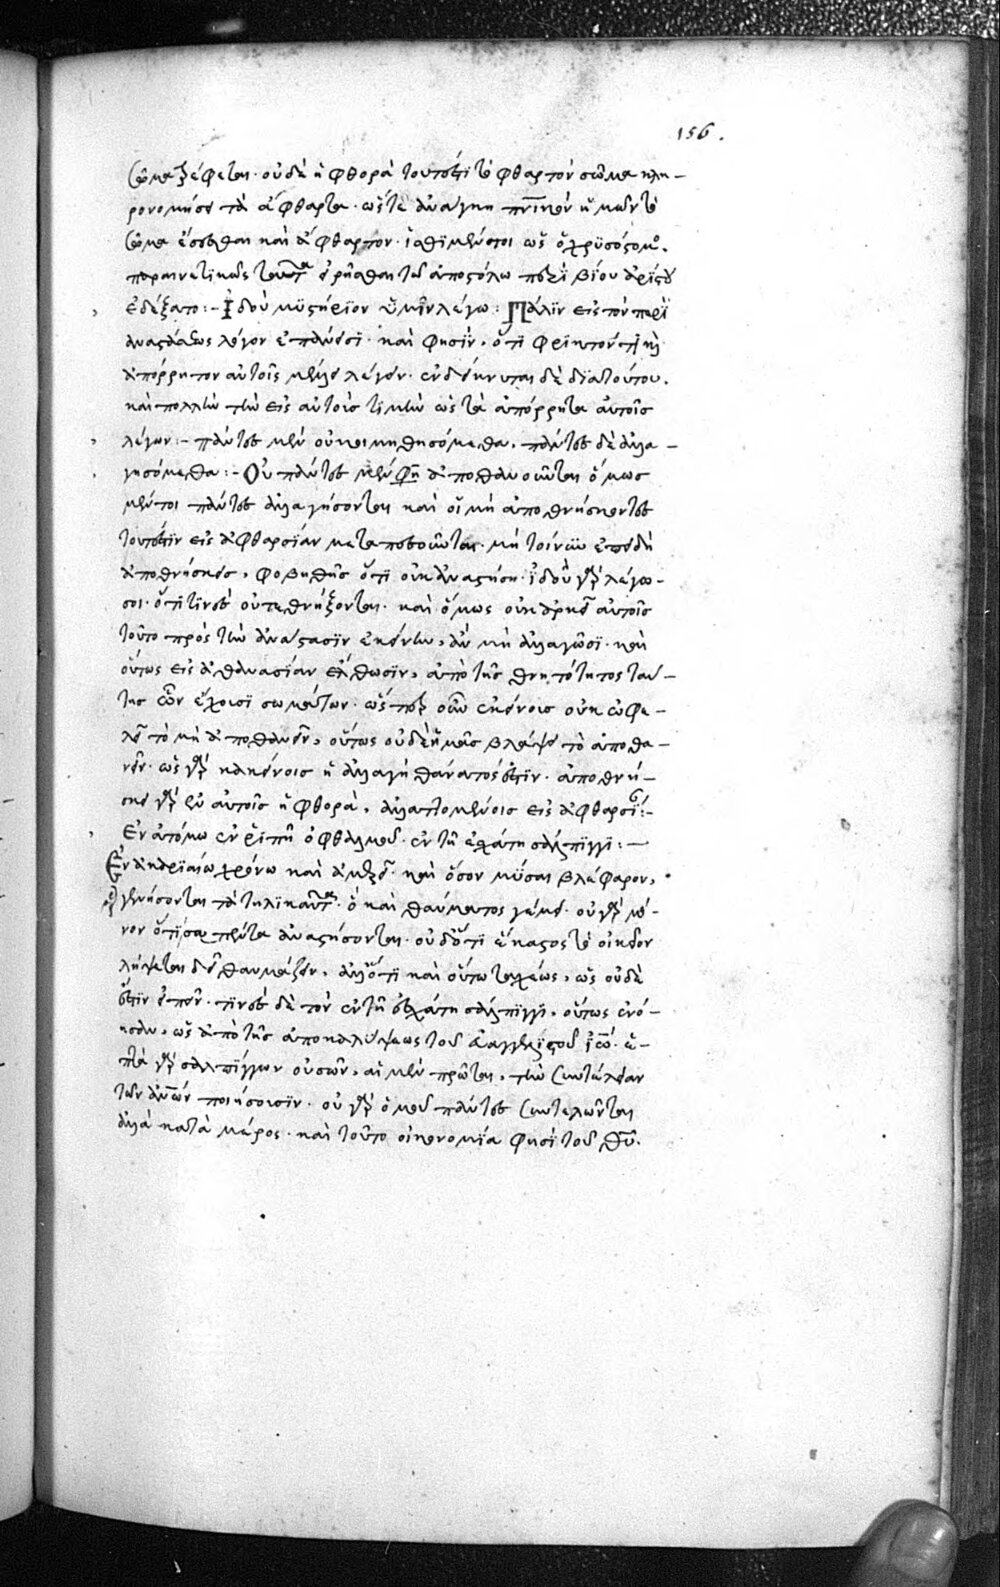 156.
σῶμα τρέφεται· οὐδὲ ἡ φθορὰ τουτέστι τὸ φθαρτὸν σῶμα κλη-
ρονομήσει τὰ ἄφθαρτα· ὥστε ἀνάγκη πνικὸν ἡμῶν τὸ
σῶμα ἔσεσθαι καὶ ἄφθαρτον· ἴσθι μέντοι ὡς ὁ χρυσόστομος
παραινετικῶς ταῦτα εἰρῆσθαι τῶ ἀποστόλω περὶ βίου ἀρίστου
ἐδέξατο:- Ἰδοὺ μυστήριον ὑμῖν λέγω: Πάλιν εἰς τὸν περὶ
ἀναστάσεως λόγον ἐπάνεισι· καὶ φησὶν, ὅτι φρικτόν τι καὶ
ἀπόρρητον αὐτοῖς μέλλει λέγειν· ἐνδείκνυται δὲ διὰ τούτου,
καὶ πολλὴν τὴν εἰς αὐτοὺς τιμὴν ὡς τὰ ἀπόρρητα αὐτοῖς
λέγων:- πάντες μὲν οὐ κοιμηθησόμεθα, πάντες δὲ ἀλλα-
γησόμεθα:- Οὐ πάντες μὲν φη ἀποθανοῦνται ὅμως
μέντοι πάντες ἀλλαγήσονται καὶ οἱ μὴ ἀποθνήσκοντες
τουτέστιν εἰς ἀφθαρσίαν μεταπεσοῦνται· μὴ τοίνυν ἐπειδὴ
ἀποθνήσκεις, φοβηθῆς ὅτι οὐκ ἀναστήση· ἰδοὺ γὰρ λέγω
σοι· ὅτι τινὲς οὐ τεθνήξονται· καὶ ὅμως οὐκ ἀρκεῖ αὐτοῖς
τοῦτο πρὸς τὴν ἀνάστασιν ἐκείνην, ἂν μὴ ἀλλαγῶσι· καὶ
οὕτως εἰς ἀθανασίαν ἔλθωσιν, ἀπὸ τῆς θνητότητος ταύ-
της ὧν ἔχουσι σωμάτων· ὥσπερ οὖν ἐκείνοις οὐκ ὠφε-
λεῖ τὸ μὴ ἀποθανεῖν, οὕτως οὐδὲ ἡμᾶς βλάψει τὸ ἀποθα-
νεῖν· ὡς γὰρ κἀκείνοις ἡ ἀλλαγὴ θάνατός ἐστιν· ἀποθνή-
σκει γὰρ ἐν αὐτοῖς ἡ φθορὰ, ἀλλαττομένοις εἰς ἀφθαρσί:-
Ἐν ἀτόμω ἐν ῥιπῆ ὀφθαλμοῦ· ἐν τῆ ἐσχάτη σάλπιγγι:-
Ἐν ἀκαριαίω χρόνω καὶ ἀμερεῖ· καὶ ὅσον μύσαι βλέφαρον,
γενήσονται τὰ τηλικαῦτα· ὃ καὶ θαύματος γέμει· οὐ γὰρ μό-
νον ὅτι σαπέντα ἀναστήσονται· οὐδ' ὅτι ἕκαστος τὸ οἰκεῖον
λήψεται δεῖ θαυμάζειν, ἀλλ' ὅτι καὶ οὕτω ταχέως, ὡς οὐδὲ
ἔστιν εἰπεῖν· τινὲς δὲ τὸν ἐν τῆ ἐσχάτη σάλπιγγι, οὕτως ἐνό-
ησαν, ὡς ἀπὸ τῆς ἀποκαλύψεως τοῦ εὐαγγελιστοῦ ἰω· ἑ-
πτὰ γὰρ σαλπίγγων οὐσῶν, αἱ μὲν πρῶται, τὴν συντέλειαν
τῶν ἀνων ποιήσουσιν· οὐ γὰρ ὁμοῦ πάντες συντελοῦνται
ἀλλὰ κατὰ μέρος· καὶ τοῦτο οἰκονομία φησὶ τοῦ θυ.